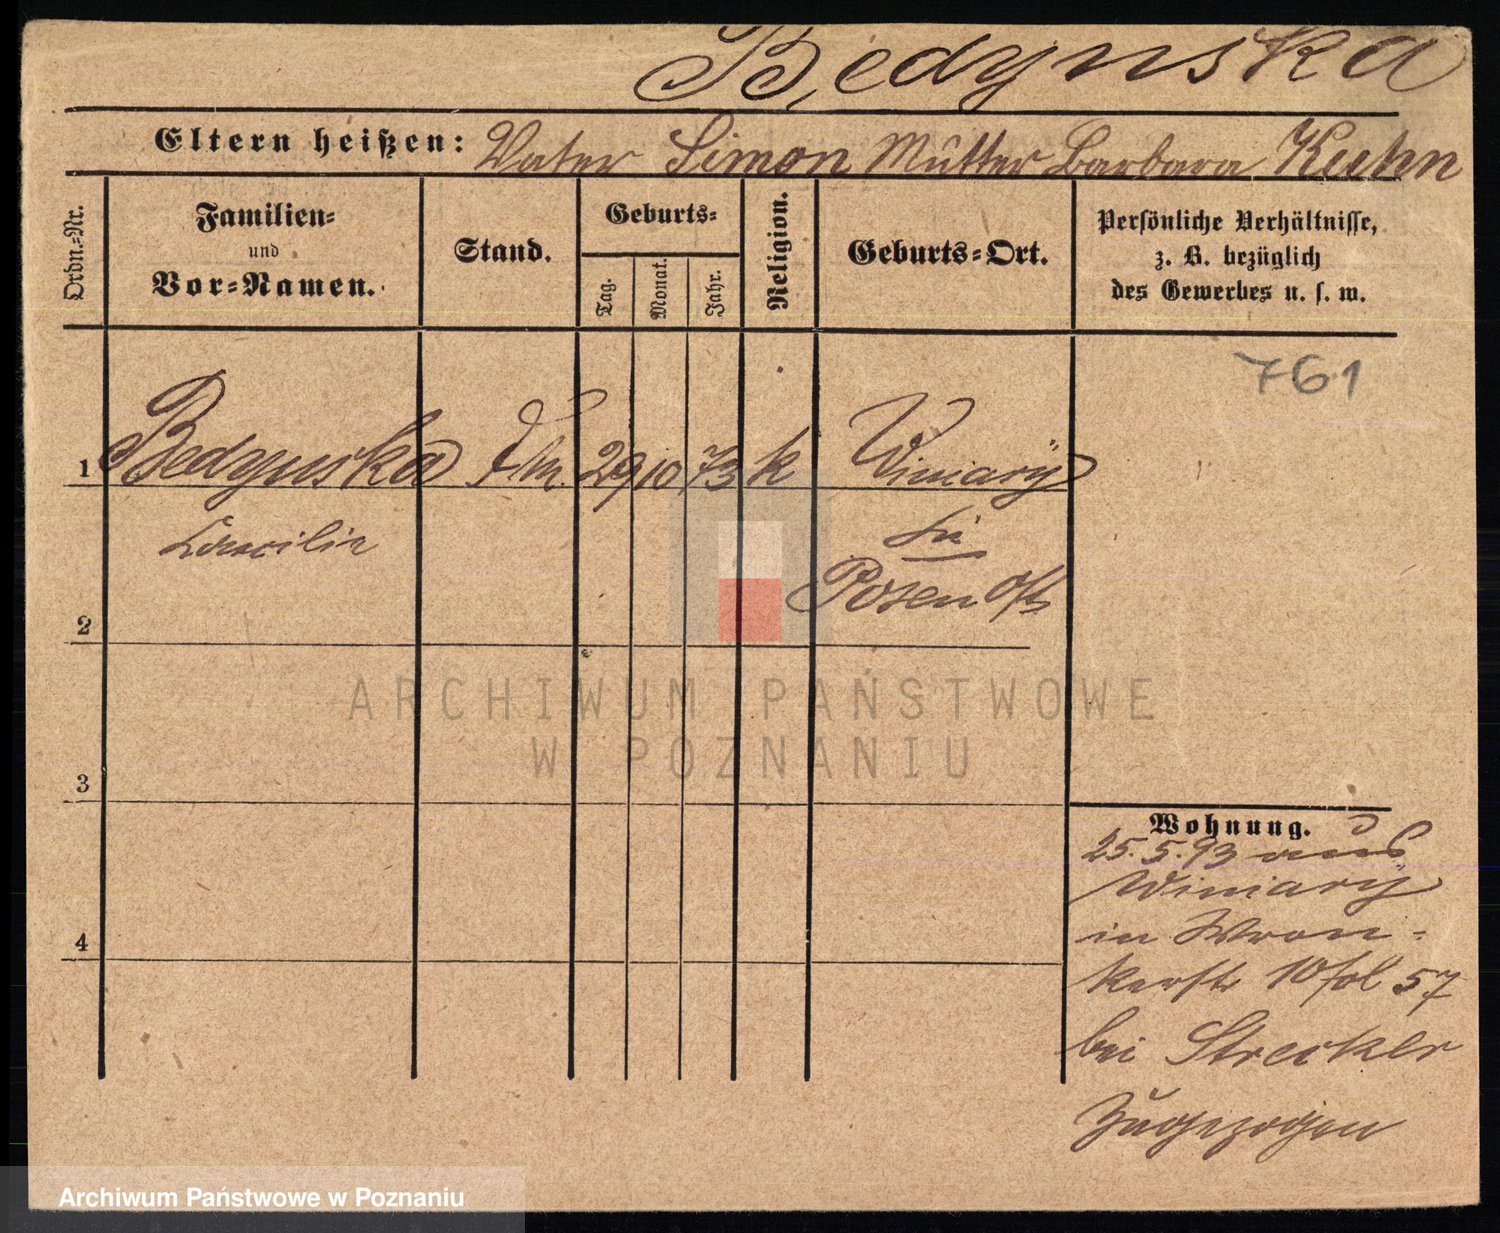 Bedynska
Eltern heißen: Vater Simon Mutter Barbara Kuhn
Ordn.-Nr.
Familien-
und
Vor-Namen.
Stand.
Geburts-
Tag.
Monat.
Jahr.
Religion.
Geburts-Ort.
Persönliche Verhältnisse,
z. B. bezüglich
des Gewerbes u. s. w.
761
1 Bedynska 29 10 73 k Winiary
Caecilie
Posen Ost
2
ARCHIWUM PAŃSTWOWE
W POZNANIU
3
Wohnung.
25.5.93 aus
Winiary
in Wron-
kerstr 10 fol 57
bei Strecker
zugezogen
4
Archiwum Państwowe w Poznaniu